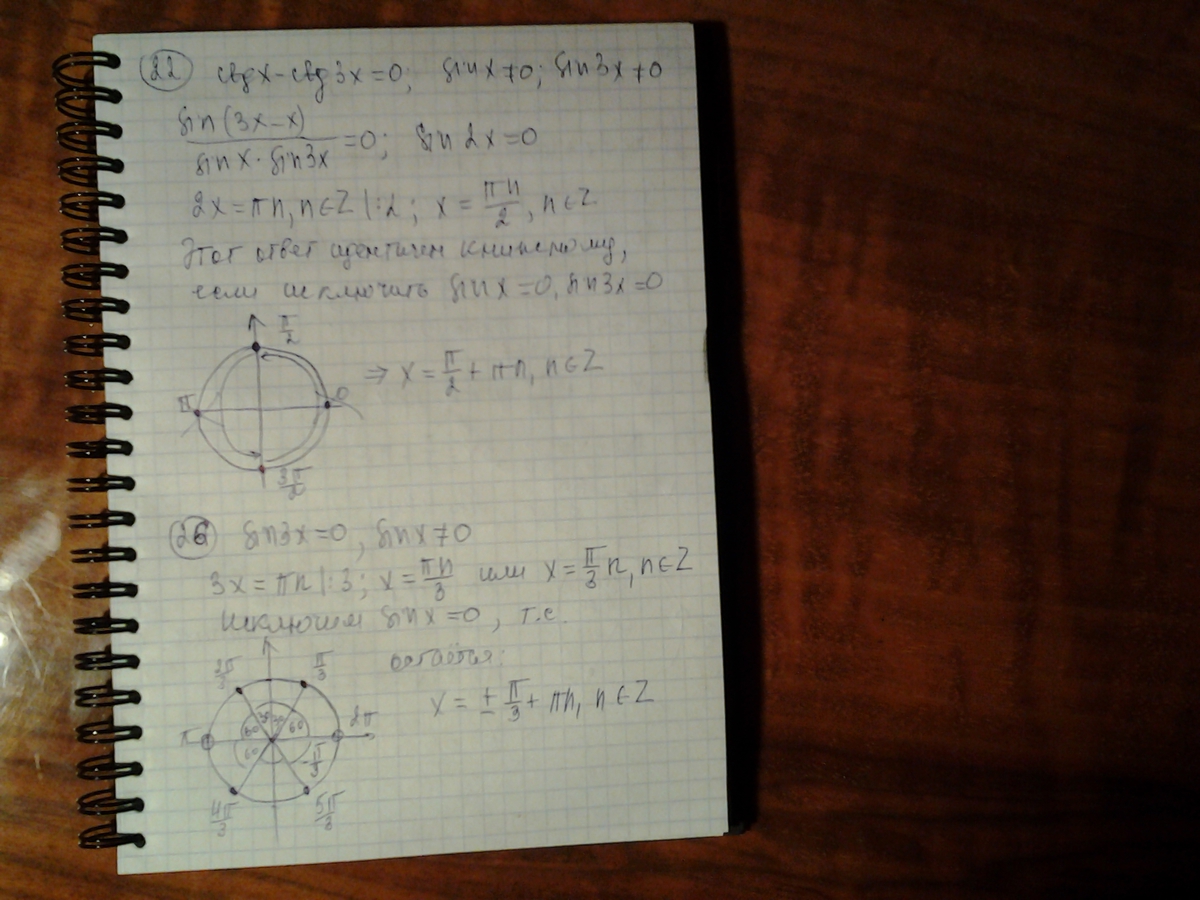 22 ctg x - ctg 3x = 0; sin x ≠ 0; sin 3x ≠ 0
sin(3x-x)/(sin x · sin 3x) = 0; sin 2x = 0
2x = πn, n ∈ Z |:2; x = πn/2, n ∈ Z
Этот ответ идентичен книжному,
если исключить sin x = 0, sin 3x = 0
π/2
⇒ x = π/2 + πn, n ∈ Z
π 0
3π/2
26 sin 3x = 0, sin x ≠ 0
3x = πn |:3; x = πn/3 или x = π/3 n, n ∈ Z
исключим sin x = 0, т.е.
остаётся:
2π/3 π/3
x = ± π/3 + πn, n ∈ Z
60 30 30 60
π 2π
60 -π/3
4π/3 5π/3